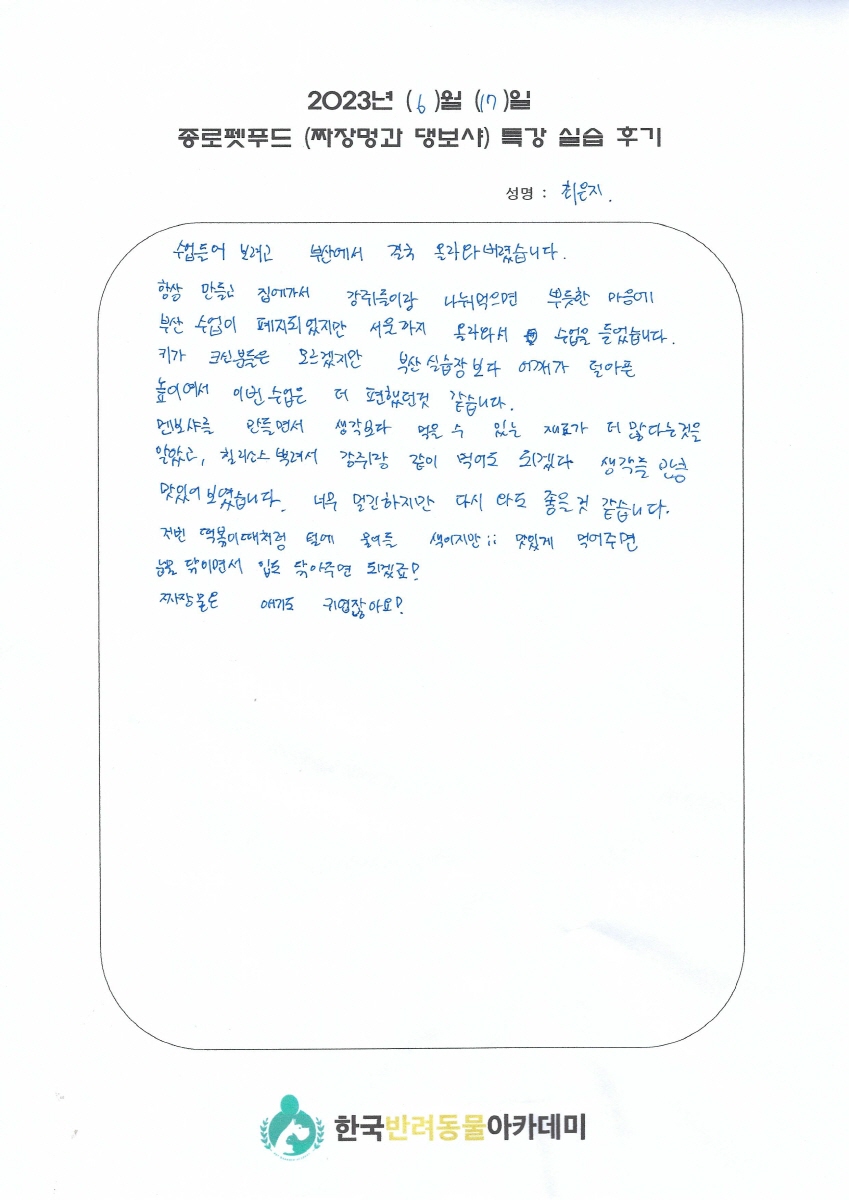 2023년 (6)월 (17)일
종로펫푸드 (짜장멍과 댕보샤) 특강 실습 후기
성명 : 최은지.
수업들어 보려고 부산에서 결국 올라와버렸습니다.
항상 만들고 집에가서 강쥐들이랑 나눠먹으면 뿌듯한 마음에
부산 수업이 폐지되었지만 서울까지 올라와서 수업을 들었습니다.
키가 크신분들은 모르겠지만 부산실습장보다 어깨가 덜아픈
높이여서 이번수업은 더 편했던것 같습니다.
멘보샤를 만들면서 생각보다 먹을 수 있는 재료가 더많다는것을
알았고, 칠리소스 뿌려서 강쥐랑 같이 먹어도 되겠다 생각들 만큼
맛있어보였습니다. 너무 멀긴하지만 다시 와도 좋을것 같습니다.
저번 떡볶이때처럼 털에 물어들 색이지만;; 맛있게 먹어주면
눈물 닦이면서 입도 닦아주면 되겠죠?
짜장물은 애기도 귀엽잖아요?
한국반려동물아카데미